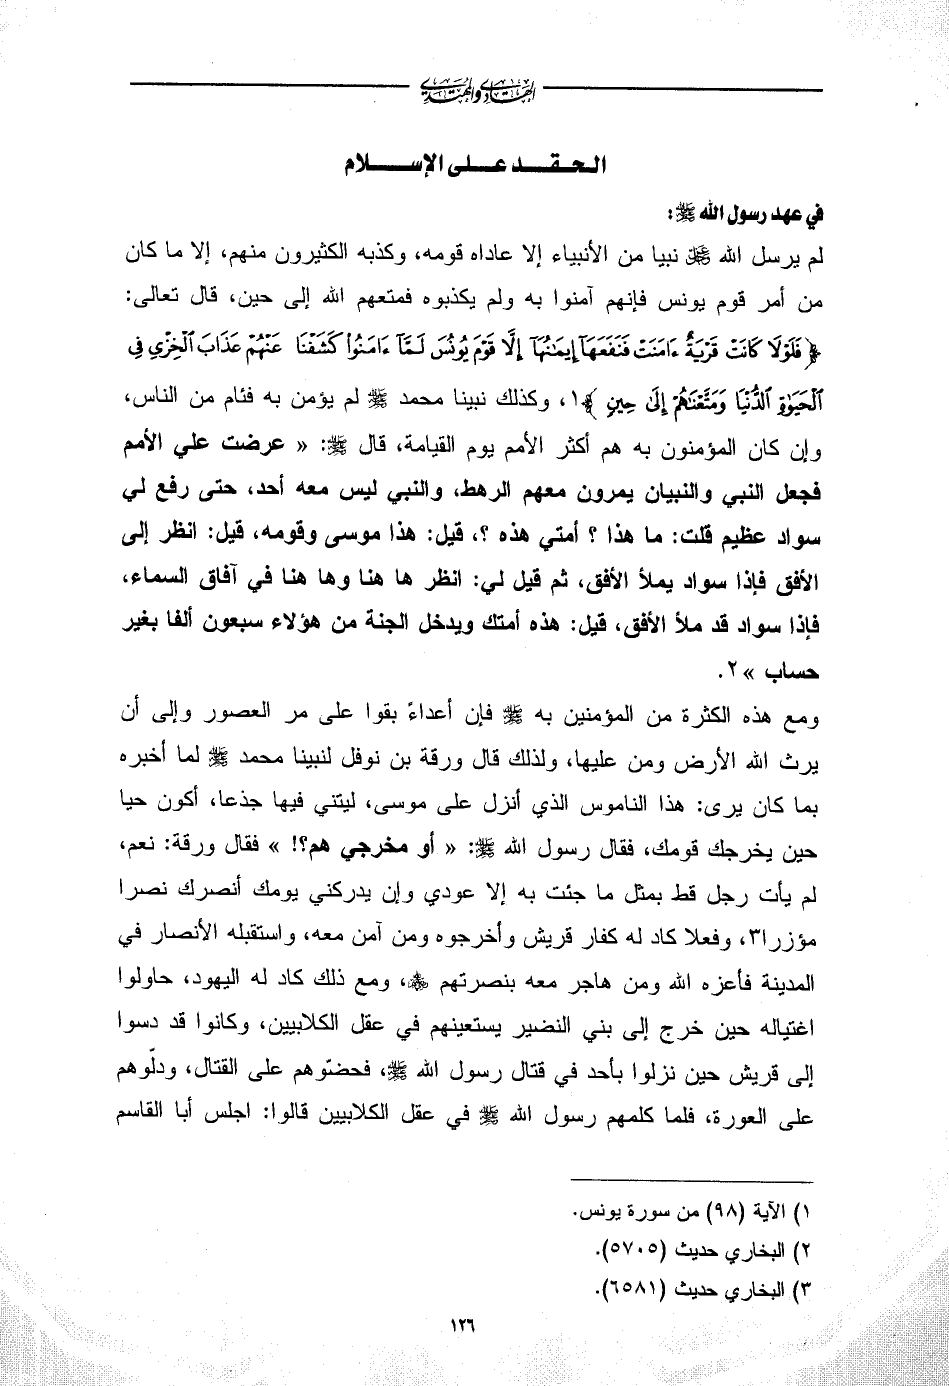 الهادي والمهتدي
الحقد على الإسلام
في عهد رسول الله ﷺ:
لم يرسل الله ﷻ نبيا من الأنبياء إلا عاداه قومه، وكذبه الكثيرون منهم، إلا ما كان
من أمر قوم يونس فإنهم آمنوا به ولم يكذبوه فمتعهم الله إلى حين، قال تعالى:
﴿ فَلَوْلَا كَانَتْ قَرْيَةٌ ءَامَنَتْ فَنَفَعَهَآ إِيمَٰنُهَآ إِلَّا قَوْمَ يُونُسَ لَمَّآ ءَامَنُوا۟ كَشَفْنَا عَنْهُمْ عَذَابَ ٱلْخِزْىِ فِى
ٱلْحَيَوٰةِ ٱلدُّنْيَا وَمَتَّعْنَٰهُمْ إِلَىٰ حِينٍ ﴾١، وكذلك نبينا محمد ﷺ لم يؤمن به فئام من الناس،
وإن كان المؤمنون به هم أكثر الأمم يوم القيامة، قال ﷺ: « عرضت علي الأمم
فجعل النبي والنبيان يمرون معهم الرهط، والنبي ليس معه أحد، حتى رفع لي
سواد عظيم قلت: ما هذا ؟ أمتي هذه ؟، قيل: هذا موسى وقومه، قيل: انظر إلى
الأفق فإذا سواد يملأ الأفق، ثم قيل لي: انظر ها هنا وها هنا في آفاق السماء،
فإذا سواد قد ملأ الأفق، قيل: هذه أمتك ويدخل الجنة من هؤلاء سبعون ألفا بغير
حساب »٢.
ومع هذه الكثرة من المؤمنين به ﷺ فإن أعداءً بقوا على مر العصور وإلى أن
يرث الله الأرض ومن عليها، ولذلك قال ورقة بن نوفل لنبينا محمد ﷺ لما أخبره
بما كان يرى: هذا الناموس الذي أنزل على موسى، ليتني فيها جذعا، أكون حيا
حين يخرجك قومك، فقال رسول الله ﷺ: « أو مخرجي هم؟! » فقال ورقة: نعم،
لم يأت رجل قط بمثل ما جئت به إلا عودي وإن يدركني يومك أنصرك نصرا
مؤزرا٣، وفعلا كاد له كفار قريش وأخرجوه ومن آمن معه، واستقبله الأنصار في
المدينة فأعزه الله ومن هاجر معه بنصرتهم ﵃، ومع ذلك كاد له اليهود، حاولوا
اغتياله حين خرج إلى بني النضير يستعينهم في عقل الكلابيين، وكانوا قد دسوا
إلى قريش حين نزلوا بأحد في قتال رسول الله ﷺ، فحضّوهم على القتال، ودلّوهم
على العورة، فلما كلمهم رسول الله ﷺ في عقل الكلابيين قالوا: اجلس أبا القاسم
١) الآية (٩٨) من سورة يونس.
٢) البخاري حديث (٥٧٠٥).
٣) البخاري حديث (٦٥٨١).
١٢٦